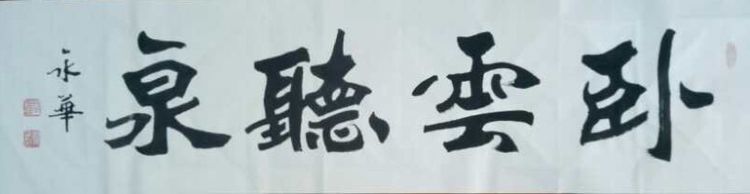 卧雲聽泉
永華